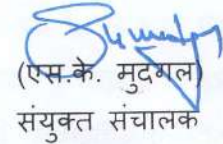 (एस.के. मुदगल)
संयुक्त संचालक